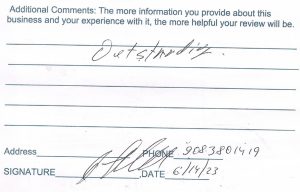 Additional Comments: The more information you provide about this
business and your experience with it, the more helpful your review will be.
Outstanding.
Address PHONE 9083801419
SIGNATURE DATE 6/14/23